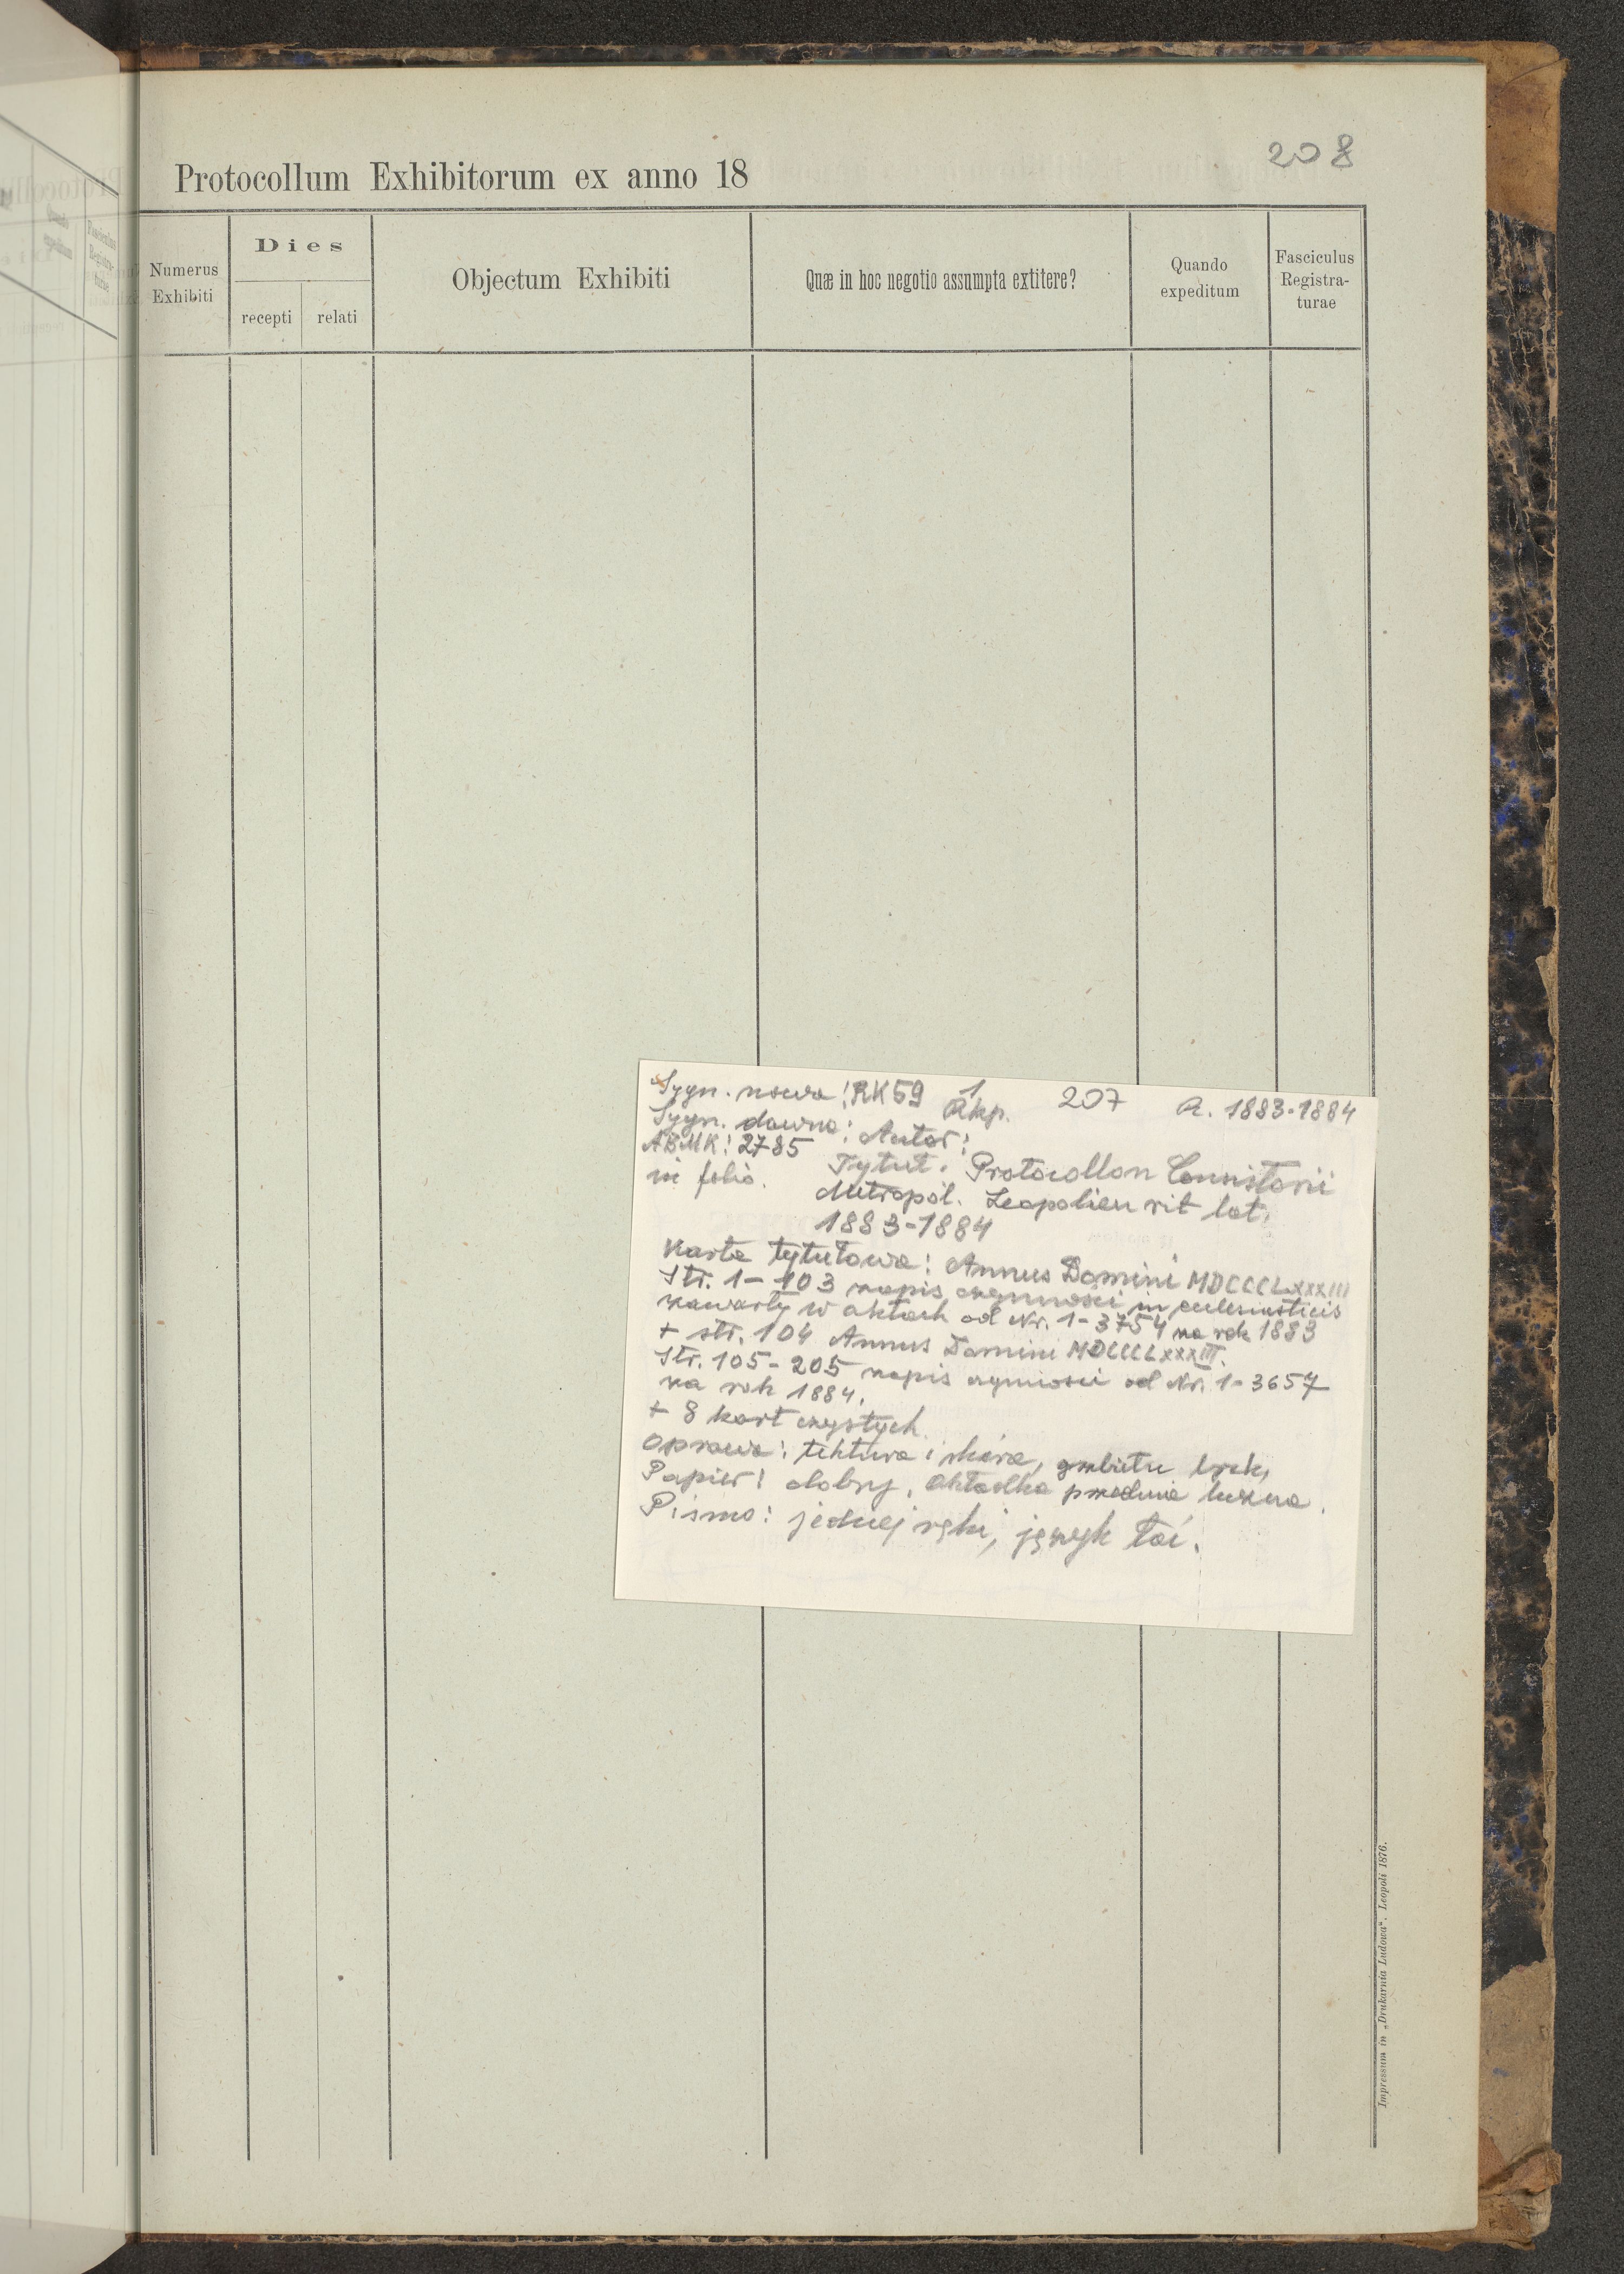 208
Protocollum Exhibitorum ex anno 18
Numerus Exhibiti
Dies
recepti
relati
Objectum Exhibiti
Quæ in hoc negotio assumpta extitere?
Quando expeditum
Fasciculus Registra-turae
Sygn. nowa: RK59 1 207 R. 1883-1884
Sygn. dawna: Rkp.
ABMK: 2785 Autor:
in folio. Tytuł: Protocollon Consistorii
Metropol. Leopolien rit lat.
1883-1884
Karta tytułowa: Annus Domini MDCCCLXXXIII
Str. 1-103 zapis czynności in ecclesiasticis
zawarty w aktach od Nr. 1-3754 na rok 1883
+ str. 104 Annus Domini MDCCCLXXXIII.
Str. 105-205 zapis czynności od Nr. 1-3657
na rok 1884.
+ 8 kart czystych.
Oprawa: tektura i skóra, grzbietu brak,
Papier: dobry, Okładka przednia luźna.
Pismo: jednej ręki, język łac.
Impressum in „Drukarnia Ludowa“. Leopoli 1876.